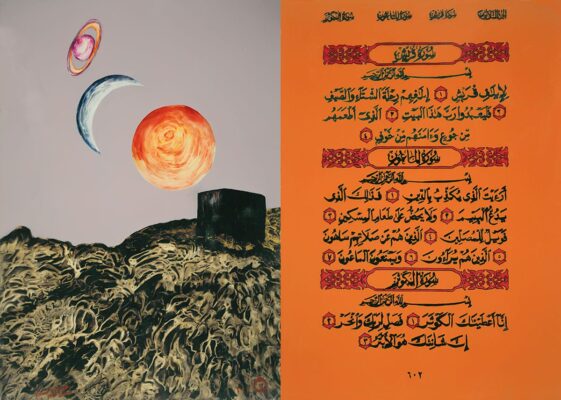 الجزء الثلاثون سورة قريش سورة الماعون سورة الكوثر
سورة قريش
بسم الله الرحمن الرحيم
لإيلاف قريش ١ إيلافهم رحلة الشتاء والصيف
٢ فليعبدوا رب هذا البيت ٣ الذي أطعمهم
من جوع وءامنهم من خوف ٤
سورة الماعون
بسم الله الرحمن الرحيم
أرءيت الذي يكذب بالدين ١ فذلك الذي
يدع اليتيم ٢ ولا يحض على طعام المسكين ٣
فويل للمصلين ٤ الذين هم عن صلاتهم ساهون
٥ الذين هم يراءون ٦ ويمنعون الماعون ٧
سورة الكوثر
بسم الله الرحمن الرحيم
إنا أعطيناك الكوثر ١ فصل لربك وانحر ٢
إن شانئك هو الأبتر ٣
٦٠٢